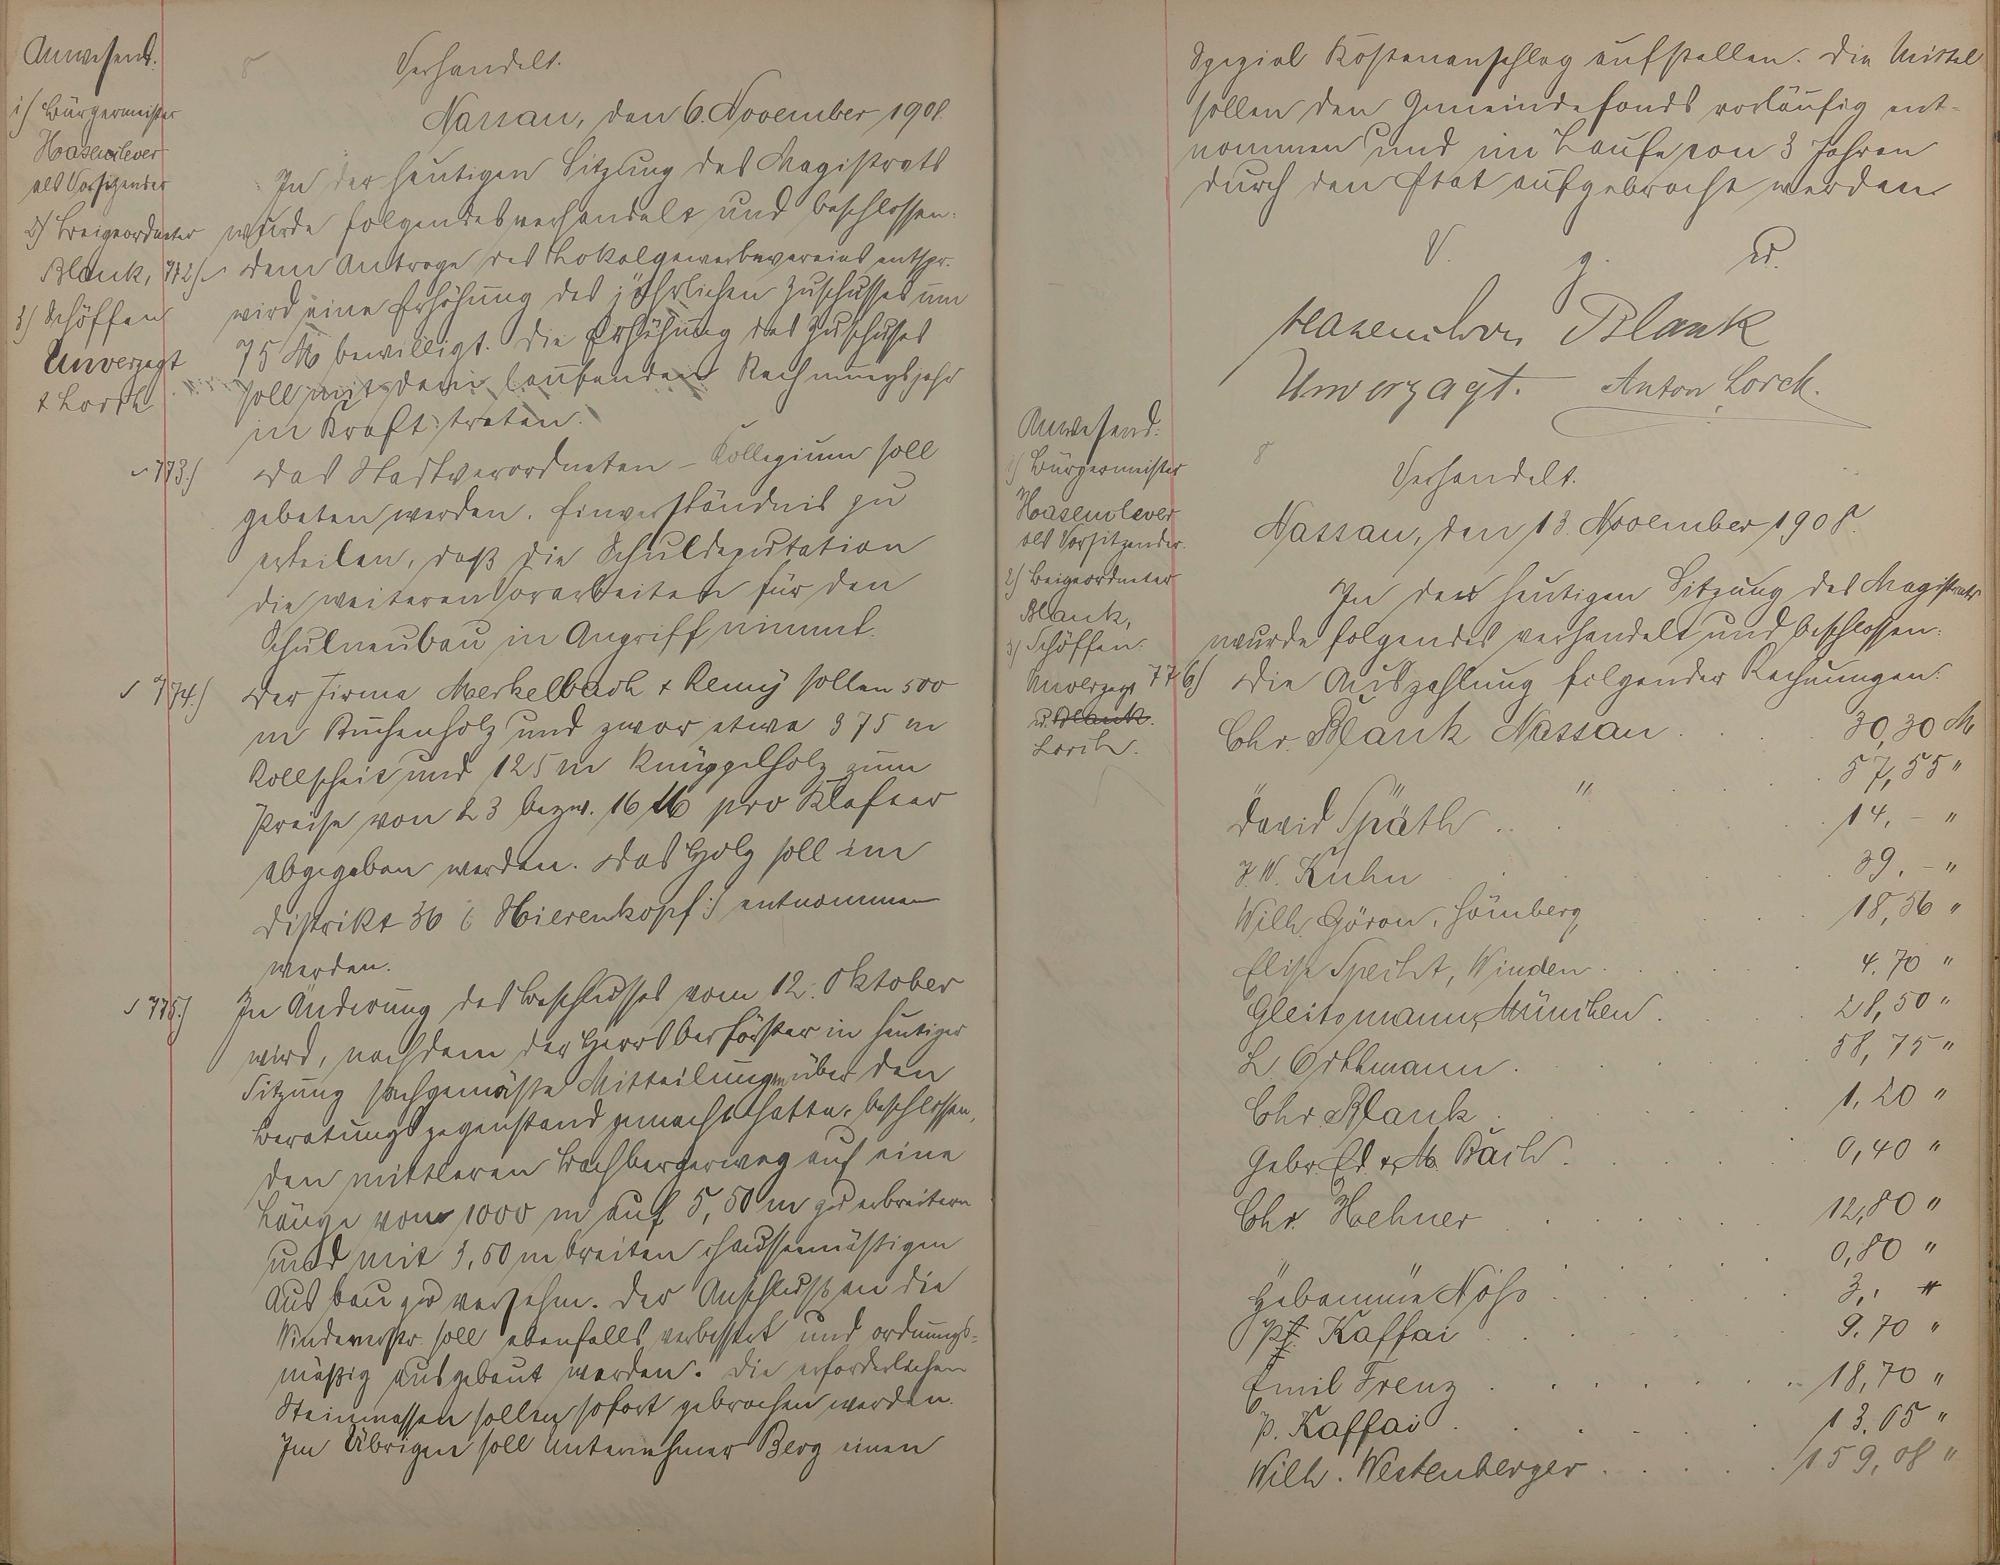 Anwesend.
1) Bürgermeister
Hasenclever
als Vorsitzender
2) Beigeordneter
Blank,
3) Schöffen
Unverzagt
& Lorch
Verhandelt.
Nassau, den 6. November 1908.
In der heutigen Sitzung des Magistrats
wurde folgendes verhandelt und beschlossen:
772) Dem Antrage des Lokalgewerbevereins entspr.
wird eine Erhöhung des jährlichen Zuschusses um
75 M bewilligt. Die Erhöhung des Zuschusses
soll mit dem laufenden Rechnungsjahr
in Kraft treten.
773.) Das Stadtverordneten-Kollegium soll
gebeten werden, Einverständnis zu
erteilen, daß die Schuldeputation
die weiteren Vorarbeiten für den
Schulneubau in Angriff nimmt.
774.) Der Firma Merkelbach & Remy sollen 500
m Buchenholz und zwar etwa 375 m
Rollscheit und 125 m Knüppelholz zum
Preise von 23 bezw. 16 M pro Klafter
abgegeben werden. Das Holz soll im
Distrikt 36 (: Hierenkopf :) entnommen
werden.
775.) In Änderung des Beschlusses vom 12. Oktober
wird, nachdem der Herr Oberförster in heutiger
Sitzung sachgemäße Mitteilungen über den
Beratungsgegenstand gemacht hatte, beschlossen,
den mittleren Bachbergerweg auf eine
Länge von 1000 m auf 5,50 m zu erbreitern
und mit 3,50 m breiten chausseemäßigen
Ausbau zu versehen. Der Anschluß an die
Windenerstr. soll ebenfalls verbessert und ordnungs-
mäßig ausgebaut werden. Die erforderlichen
Steinmassen sollen sofort gebrochen werden.
Im Übrigen soll Unternehmer Berg einen
Spezial Kostenanschlag aufstellen. Die Mittel
sollen den Gemeindefonds vorläufig ent-
nommen und im Laufe von 3 Jahren
durch den Etat aufgebracht werden.
V. g. U.
Hasenclever Blank
Unverzagt. Anton Lorch.
Anwesend:
1) Bürgermeister
Hasenclever
als Vorsitzender.
2) Beigeordneter
Blank,
3) Schöffen:
Unverzagt
u. Blank.
Lorch.
Verhandelt.
Nassau, den 13. November 1908.
In der heutigen Sitzung des Magistrats
wurde folgendes verhandelt und beschlossen:
776) Die Auszahlung folgender Rechnungen:
Chr. Blank Nassau . . . 30,30 M
57,55 "
David Späth " . . . 14,- "
J. W. Kuhn . . . 39,- "
Wilh. Göron, Hömberg . . . 18,56 "
Elise Specht, Winden . . . 4,70 "
Gleitsmann, München . . . 28,50 "
L. Orthmann . . . 58,75 "
Chr. Blank . . . 1,20 "
Gebr. Ed. & M. Bach . . . 0,40 "
Chr. Hehner . . . 12,80 "
" . . . 0,80 "
Hebamme Nöhs . . . 3,- "
Pf. Kaffai . . . 9,70 "
Emil Frenz . . . 18,70 "
P. Kaffai . . . 13,05 "
Wilh. Westenberger . . . 159,08 "